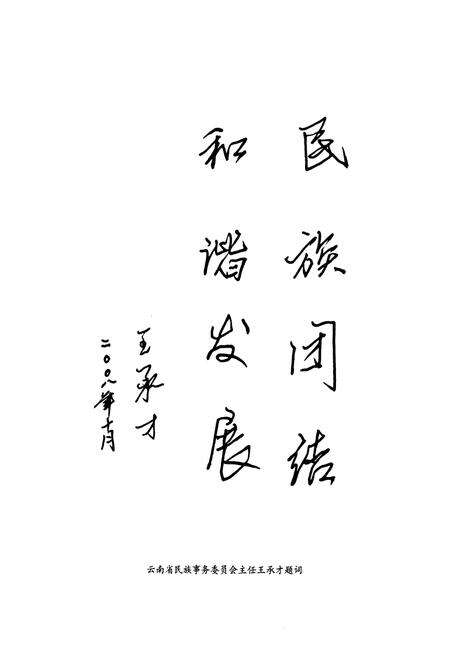 民族团结
和谐发展
王承才
二〇〇八年十月
云南省民族事务委员会主任王承才题词